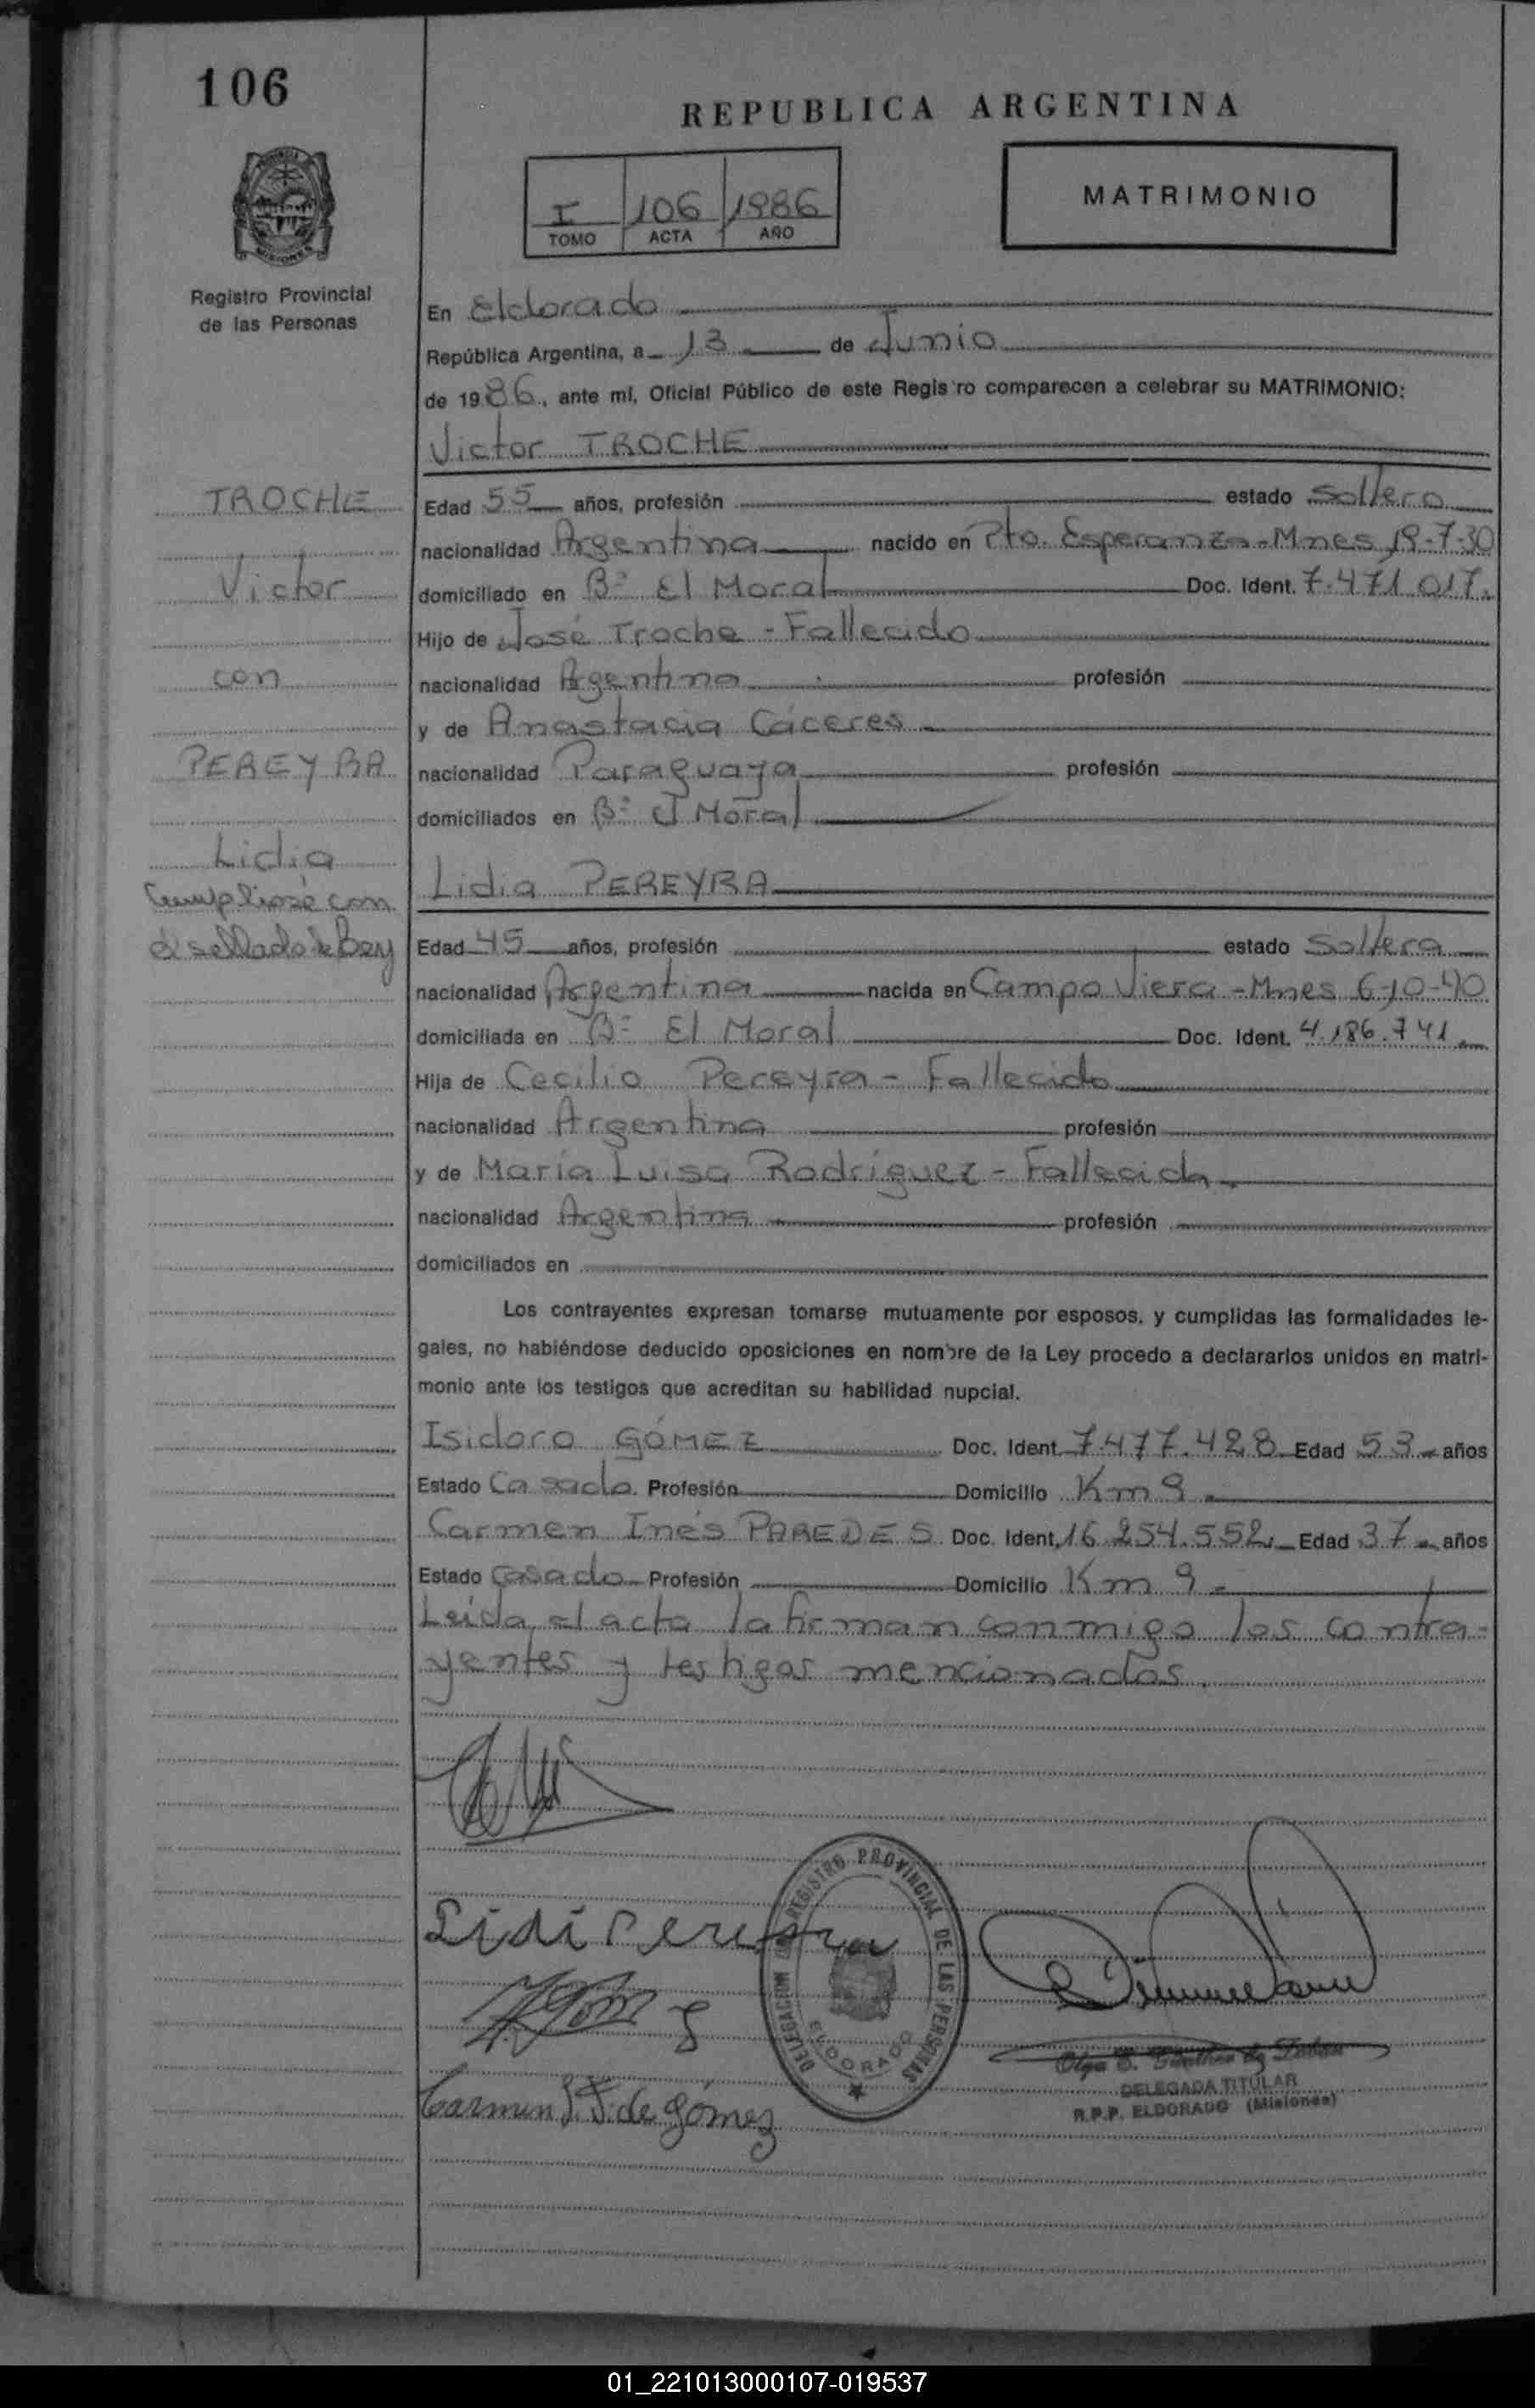 106
REPUBLICA ARGENTINA
I 106 1986
TOMO ACTA AÑO
MATRIMONIO
Registro Provincial
de las Personas
En Eldorado
República Argentina, a 13 de Junio
de 1986, ante mí, Oficial Público de este Regis ro comparecen a celebrar su MATRIMONIO:
Victor TROCHE
TROCHE
Edad 55 años, profesión estado Soltero
nacionalidad Argentina nacido en Pto. Esperanza-Mnes 19-7-30
Victor
domiciliado en Bº El Moral Doc. Ident. 7.471.017.
Hijo de José Troche - Fallecido
con
nacionalidad Argentina profesión
y de Anastacia Cáceres
PEREYRA
nacionalidad Paraguaya profesión
domiciliados en Bº El Moral
Lidia
Lidia PEREYRA
Cumpliose con
el sellado de Bey
Edad 45 años, profesión estado Soltera
nacionalidad Argentina nacida en Campo Viera - Mnes 6-10-40
domiciliada en Bº El Moral Doc. Ident. 4.186.741
Hija de Cecilio Pereyra - Fallecido
nacionalidad Argentina profesión
y de María Luisa Rodríguez - Fallecida
nacionalidad Argentina profesión
domiciliados en
Los contrayentes expresan tomarse mutuamente por esposos, y cumplidas las formalidades le-
gales, no habiéndose deducido oposiciones en nombre de la Ley procedo a declararlos unidos en matri-
monio ante los testigos que acreditan su habilidad nupcial.
Isidoro GÓMEZ Doc. Ident. 7.477.428 Edad 53 años
Estado Casado. Profesión Domicilio Km 9
Carmen Inés PAREDES Doc. Ident. 16.254.552 Edad 37 años
Estado Casado Profesión Domicilio Km 9
Leída el acta la firman conmigo los contra-
yentes y testigos mencionados.
Lidi Pereyra
DELEGACION REGISTRO PROVINCIAL DE LAS PERSONAS
ELDORADO
Carmen de Gómez
Olga E. de
DELEGADA TITULAR
R.P.P. ELDORADO (Misiones)
01_221013000107-019537